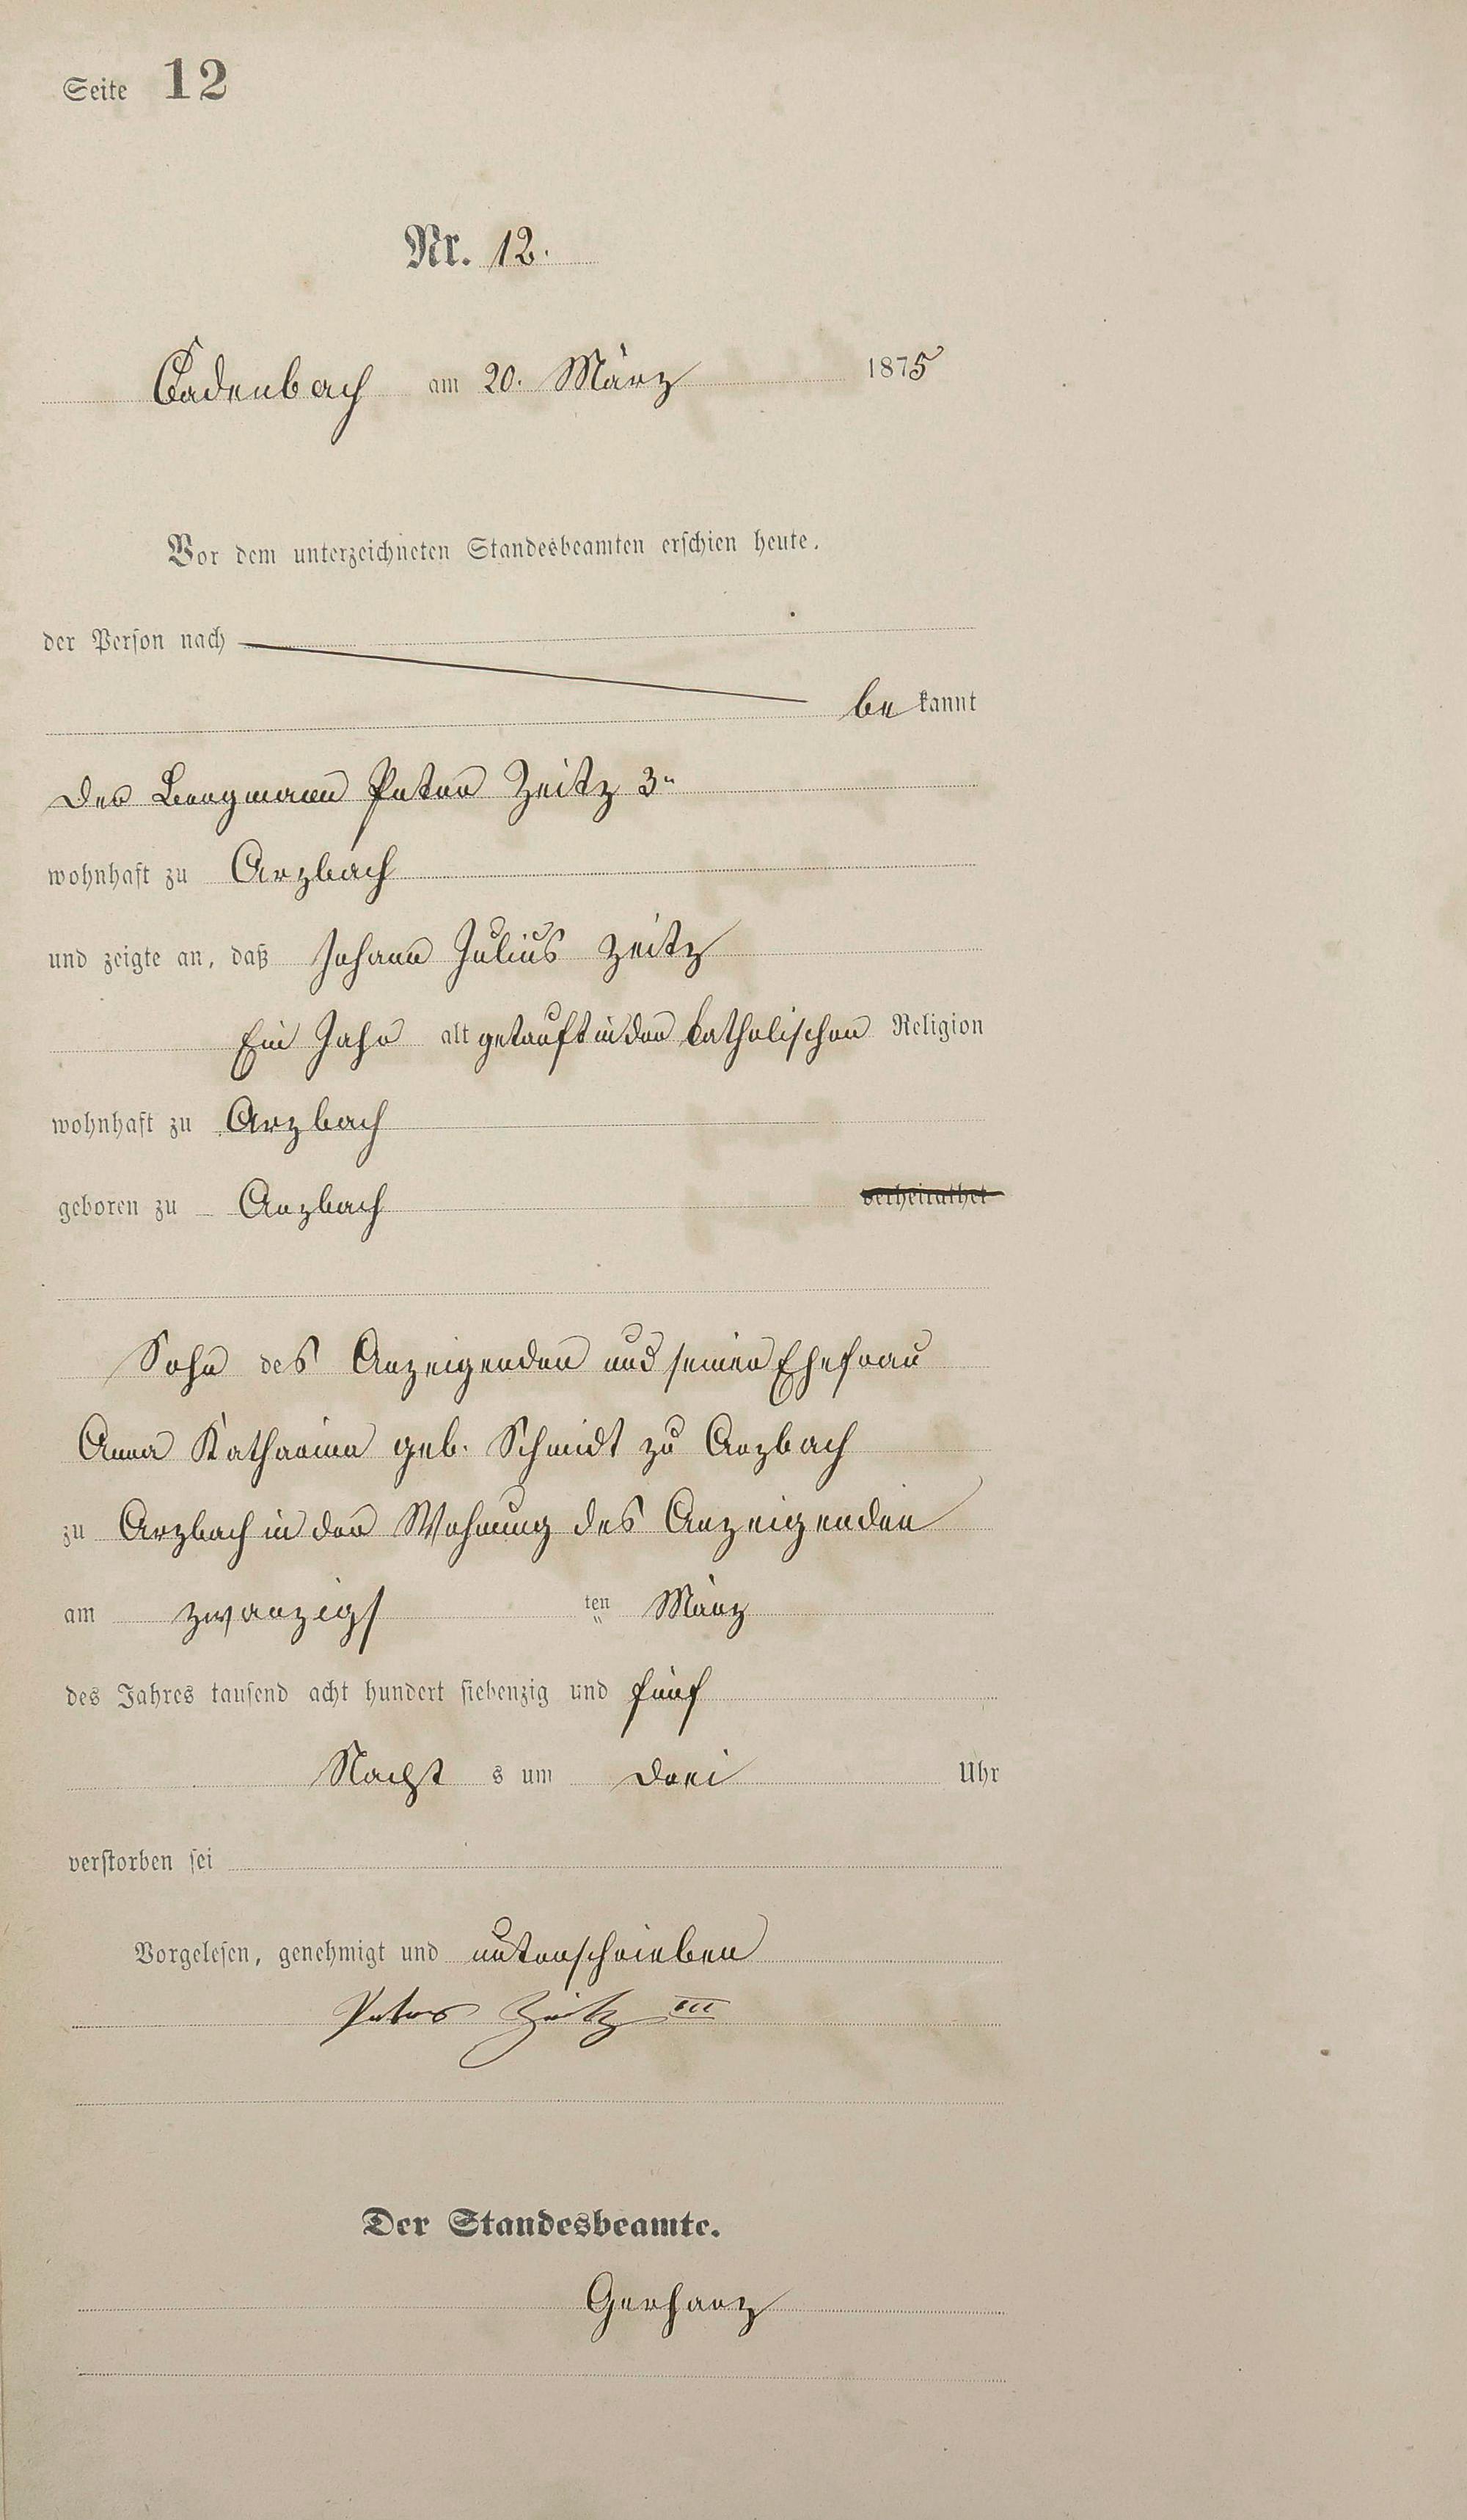 Seite 12
Nr. 12.
Cadenbach am 20. März 1875
Vor dem unterzeichneten Standesbeamten erschien heute,
der Person nach
bekannt
der Bergmann Peter Zeitz 3r
wohnhaft zu Arzbach
und zeigte an, daß Johann Julius Zeitz
Ein Jahr alt getauft in der katholischen Religion
wohnhaft zu Arzbach
geboren zu Arzbach verheirathet
Sohn des Anzeigenden und seiner Ehefrau
Anna Katharina geb. Schmidt zu Arzbach
zu Arzbach in der Wohnung des Anzeigenden
am zwanzigsten März
des Jahres tausend acht hundert siebenzig und fünf
Nachts um drei Uhr
verstorben sei
Vorgelesen, genehmigt und unterschrieben
Peter Zeitz III
Der Standesbeamte.
Gerharz